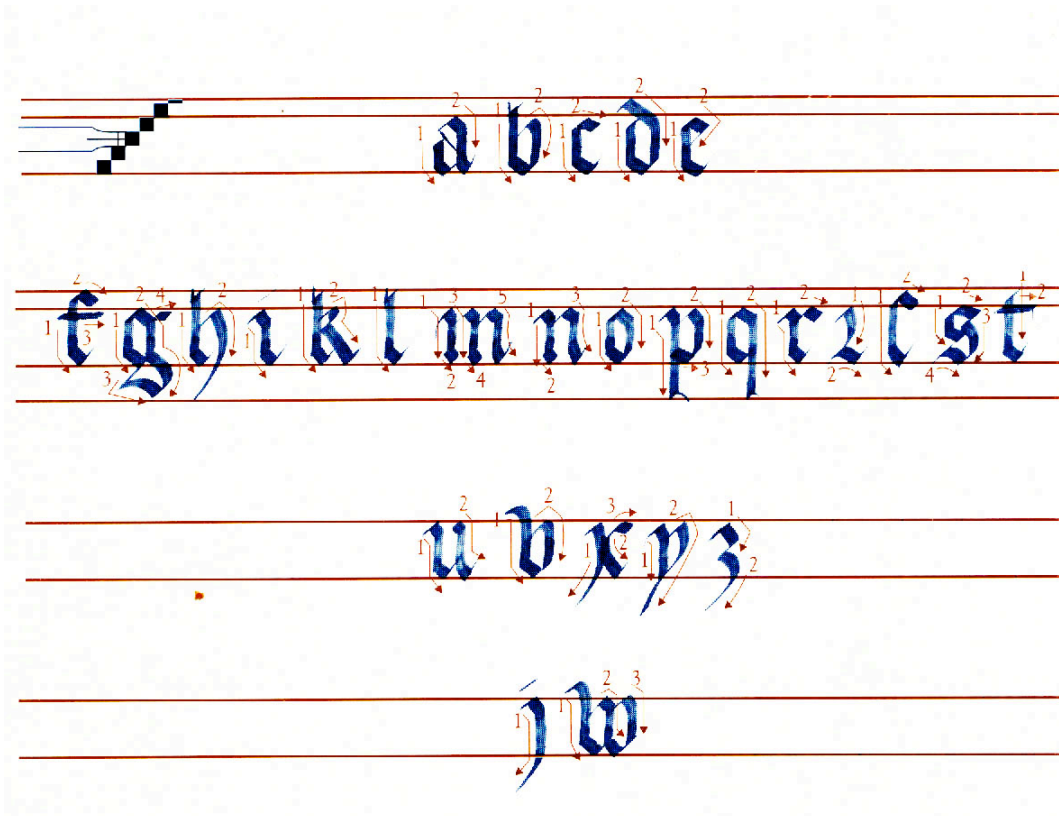 a b c d e
f g h i k l m n o p q r ꝛ ſ s t
u v x y z
j w